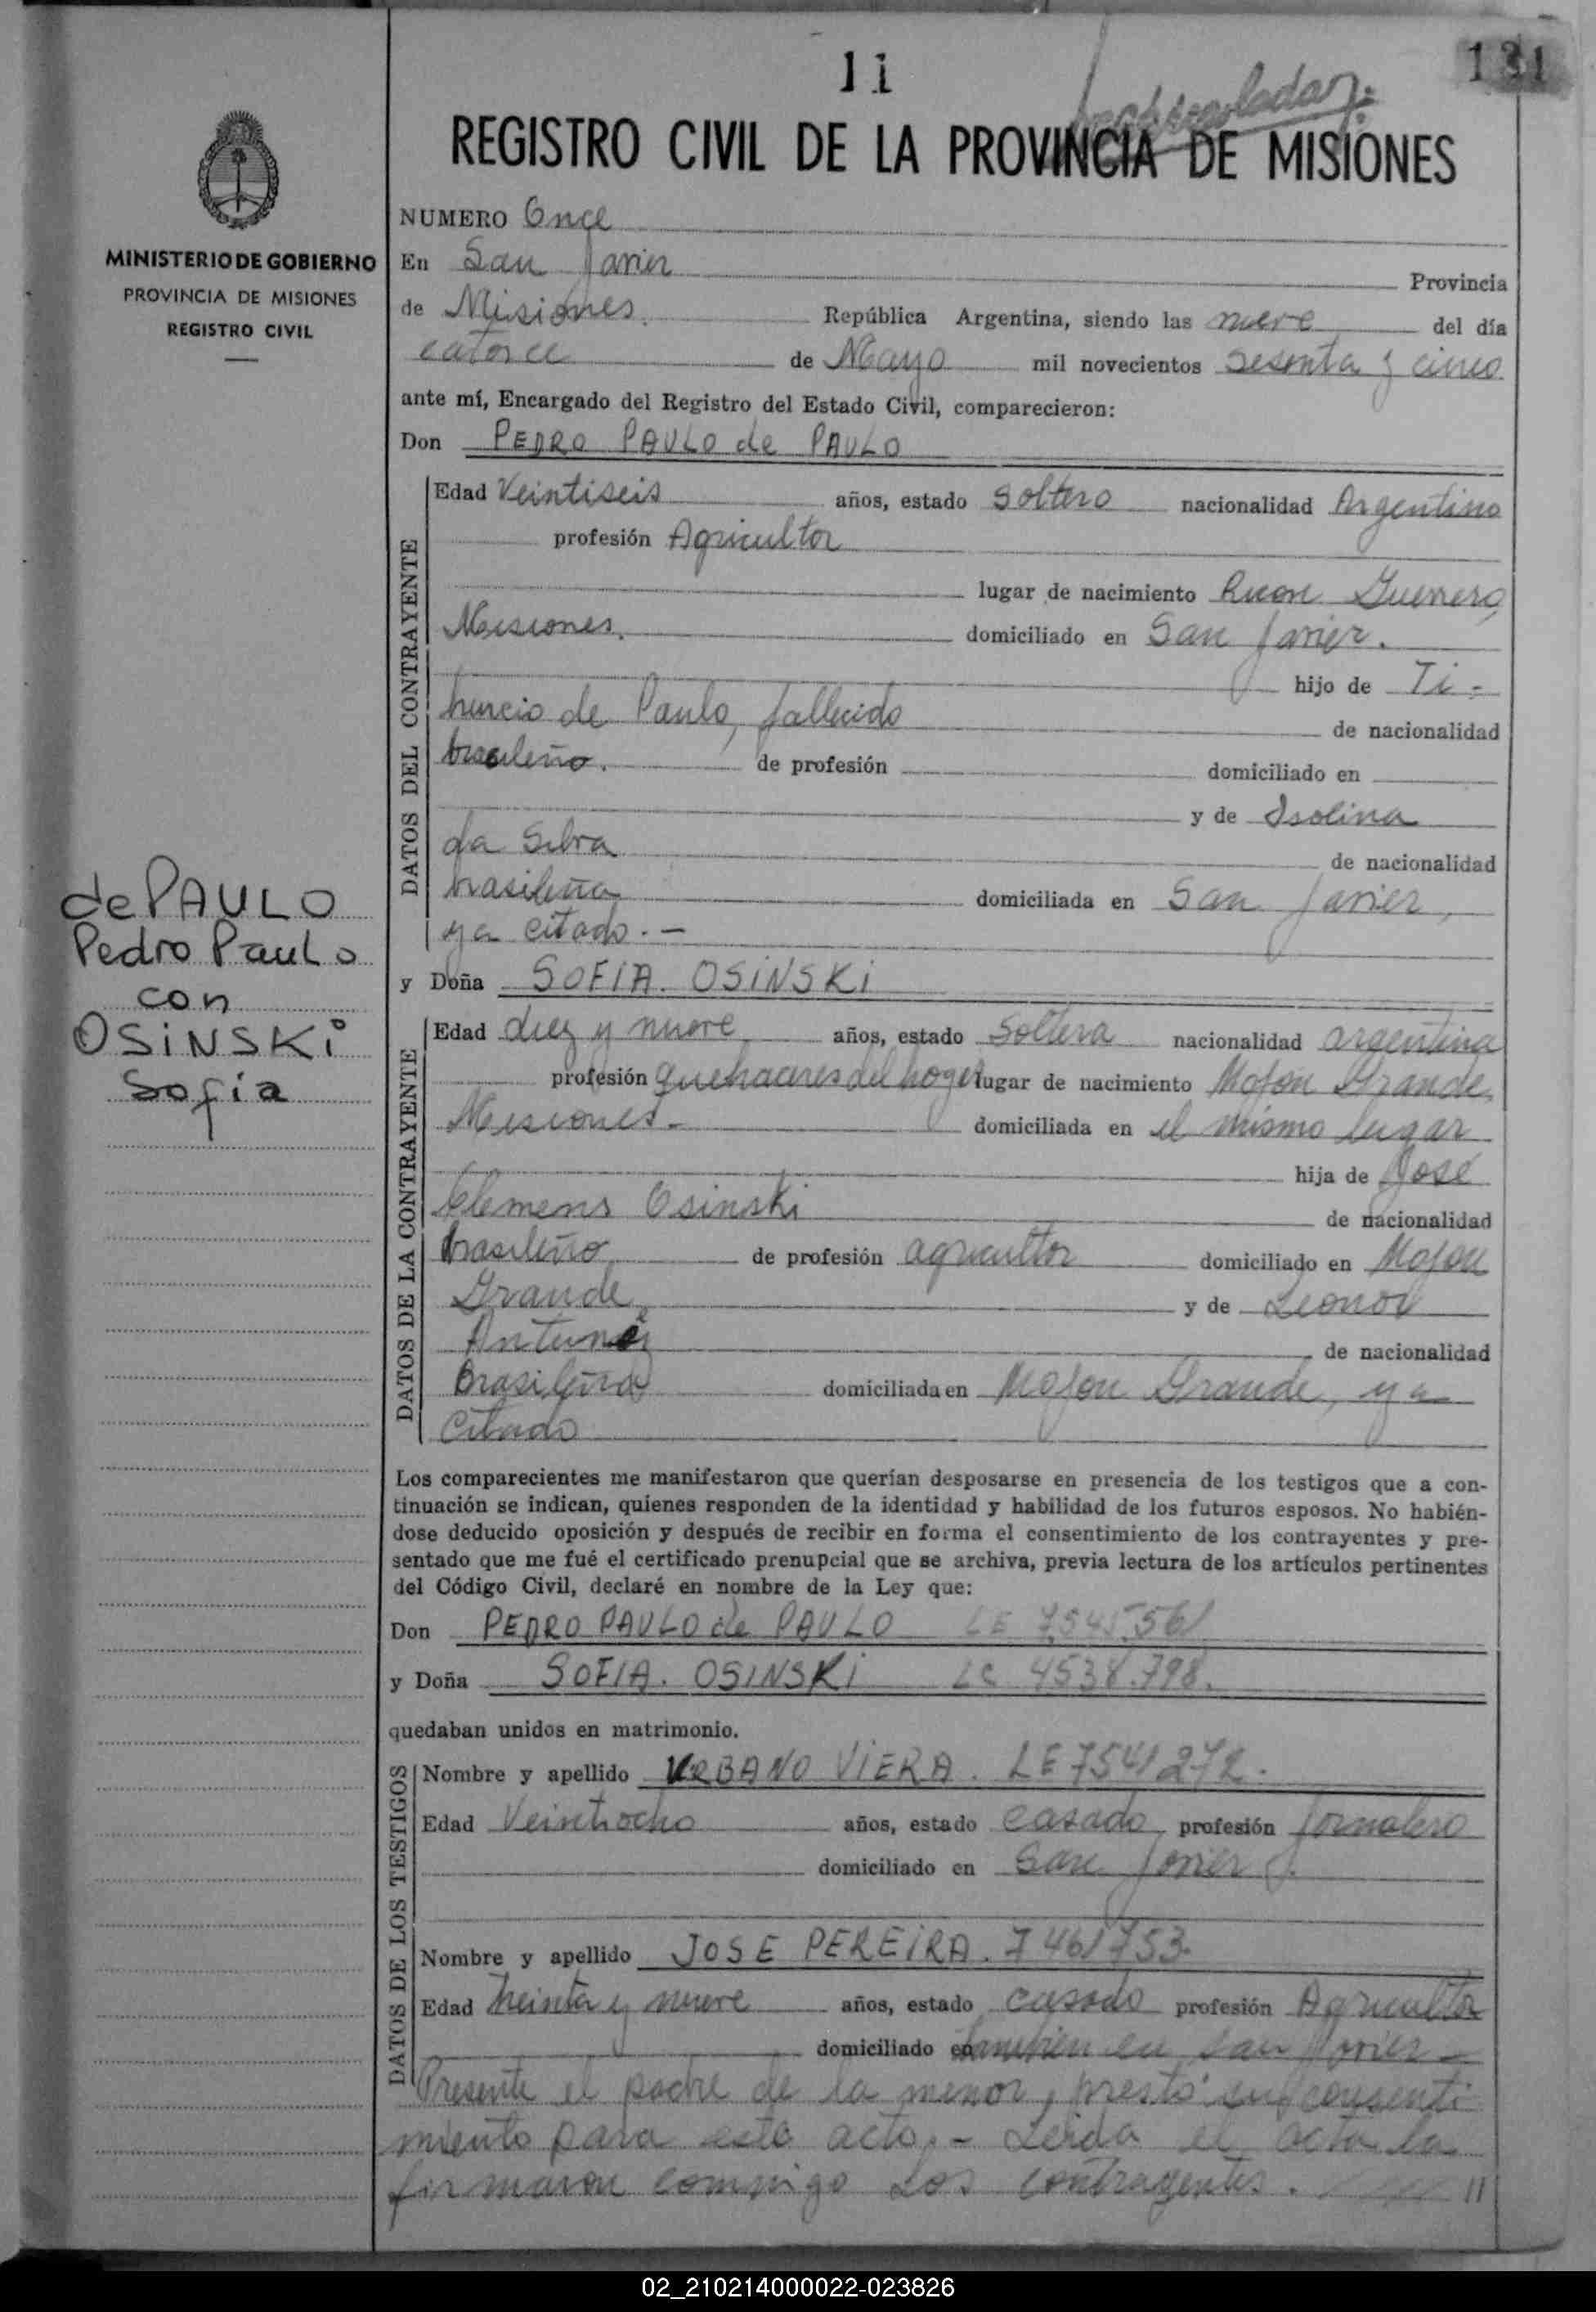 11
131
REGISTRO CIVIL DE LA PROVINCIA DE MISIONES
MINISTERIO DE GOBIERNO
PROVINCIA DE MISIONES
REGISTRO CIVIL
de PAULO
Pedro Paulo
con
OSINSKI
Sofia
NUMERO Once
En San Javier Provincia
de Misiones. República Argentina, siendo las nueve del día
catorce de Mayo mil novecientos sesenta y cinco
ante mí, Encargado del Registro del Estado Civil, comparecieron:
Don PEDRO PAULO de PAULO
DATOS DEL CONTRAYENTE
Edad Veintiseis años, estado Soltero nacionalidad Argentino
profesión Agricultor
lugar de nacimiento Guerrero,
Misiones. domiciliado en San Javier.
hijo de Ti-
burcio de Paulo, fallecido de nacionalidad
brasileño. de profesión domiciliado en
y de Isolina
da Silva de nacionalidad
brasileña domiciliada en San Javier,
ya citado. -
y Doña SOFIA. OSINSKI
DATOS DE LA CONTRAYENTE
Edad diez y nueve años, estado Soltera nacionalidad argentina
profesión quehaceres del hogar lugar de nacimiento Mojon Grande,
Misiones - domiciliada en el mismo lugar
hija de José
Clemens Osinski de nacionalidad
brasileño de profesión agricultor domiciliado en Mojon
Grande y de Leonor
de nacionalidad
Brasileña domiciliada en Mojon Grande, ya
citado
Los comparecientes me manifestaron que querían desposarse en presencia de los testigos que a con-
tinuación se indican, quienes responden de la identidad y habilidad de los futuros esposos. No habién-
dose deducido oposición y después de recibir en forma el consentimiento de los contrayentes y pre-
sentado que me fué el certificado prenupcial que se archiva, previa lectura de los artículos pertinentes
del Código Civil, declaré en nombre de la Ley que:
Don PEDRO PAULO de PAULO LE 7.545.561
y Doña SOFIA. OSINSKI LC 4538.798.
quedaban unidos en matrimonio.
DATOS DE LOS TESTIGOS
Nombre y apellido URBANO VIERA. LE 7541272.
Edad Veintiocho años, estado casado profesión jornalero
domiciliado en San Javier.
Nombre y apellido JOSE PEREIRA. 7461753.
Edad treinta y nueve años, estado casado profesión Agricultor
domiciliado en tambien en San Javier -
Presente el padre de la menor, prestó su consenti
miento para este acto. - Leida el acta la
firmaron conmigo los contrayentes. //
02_210214000022-023826